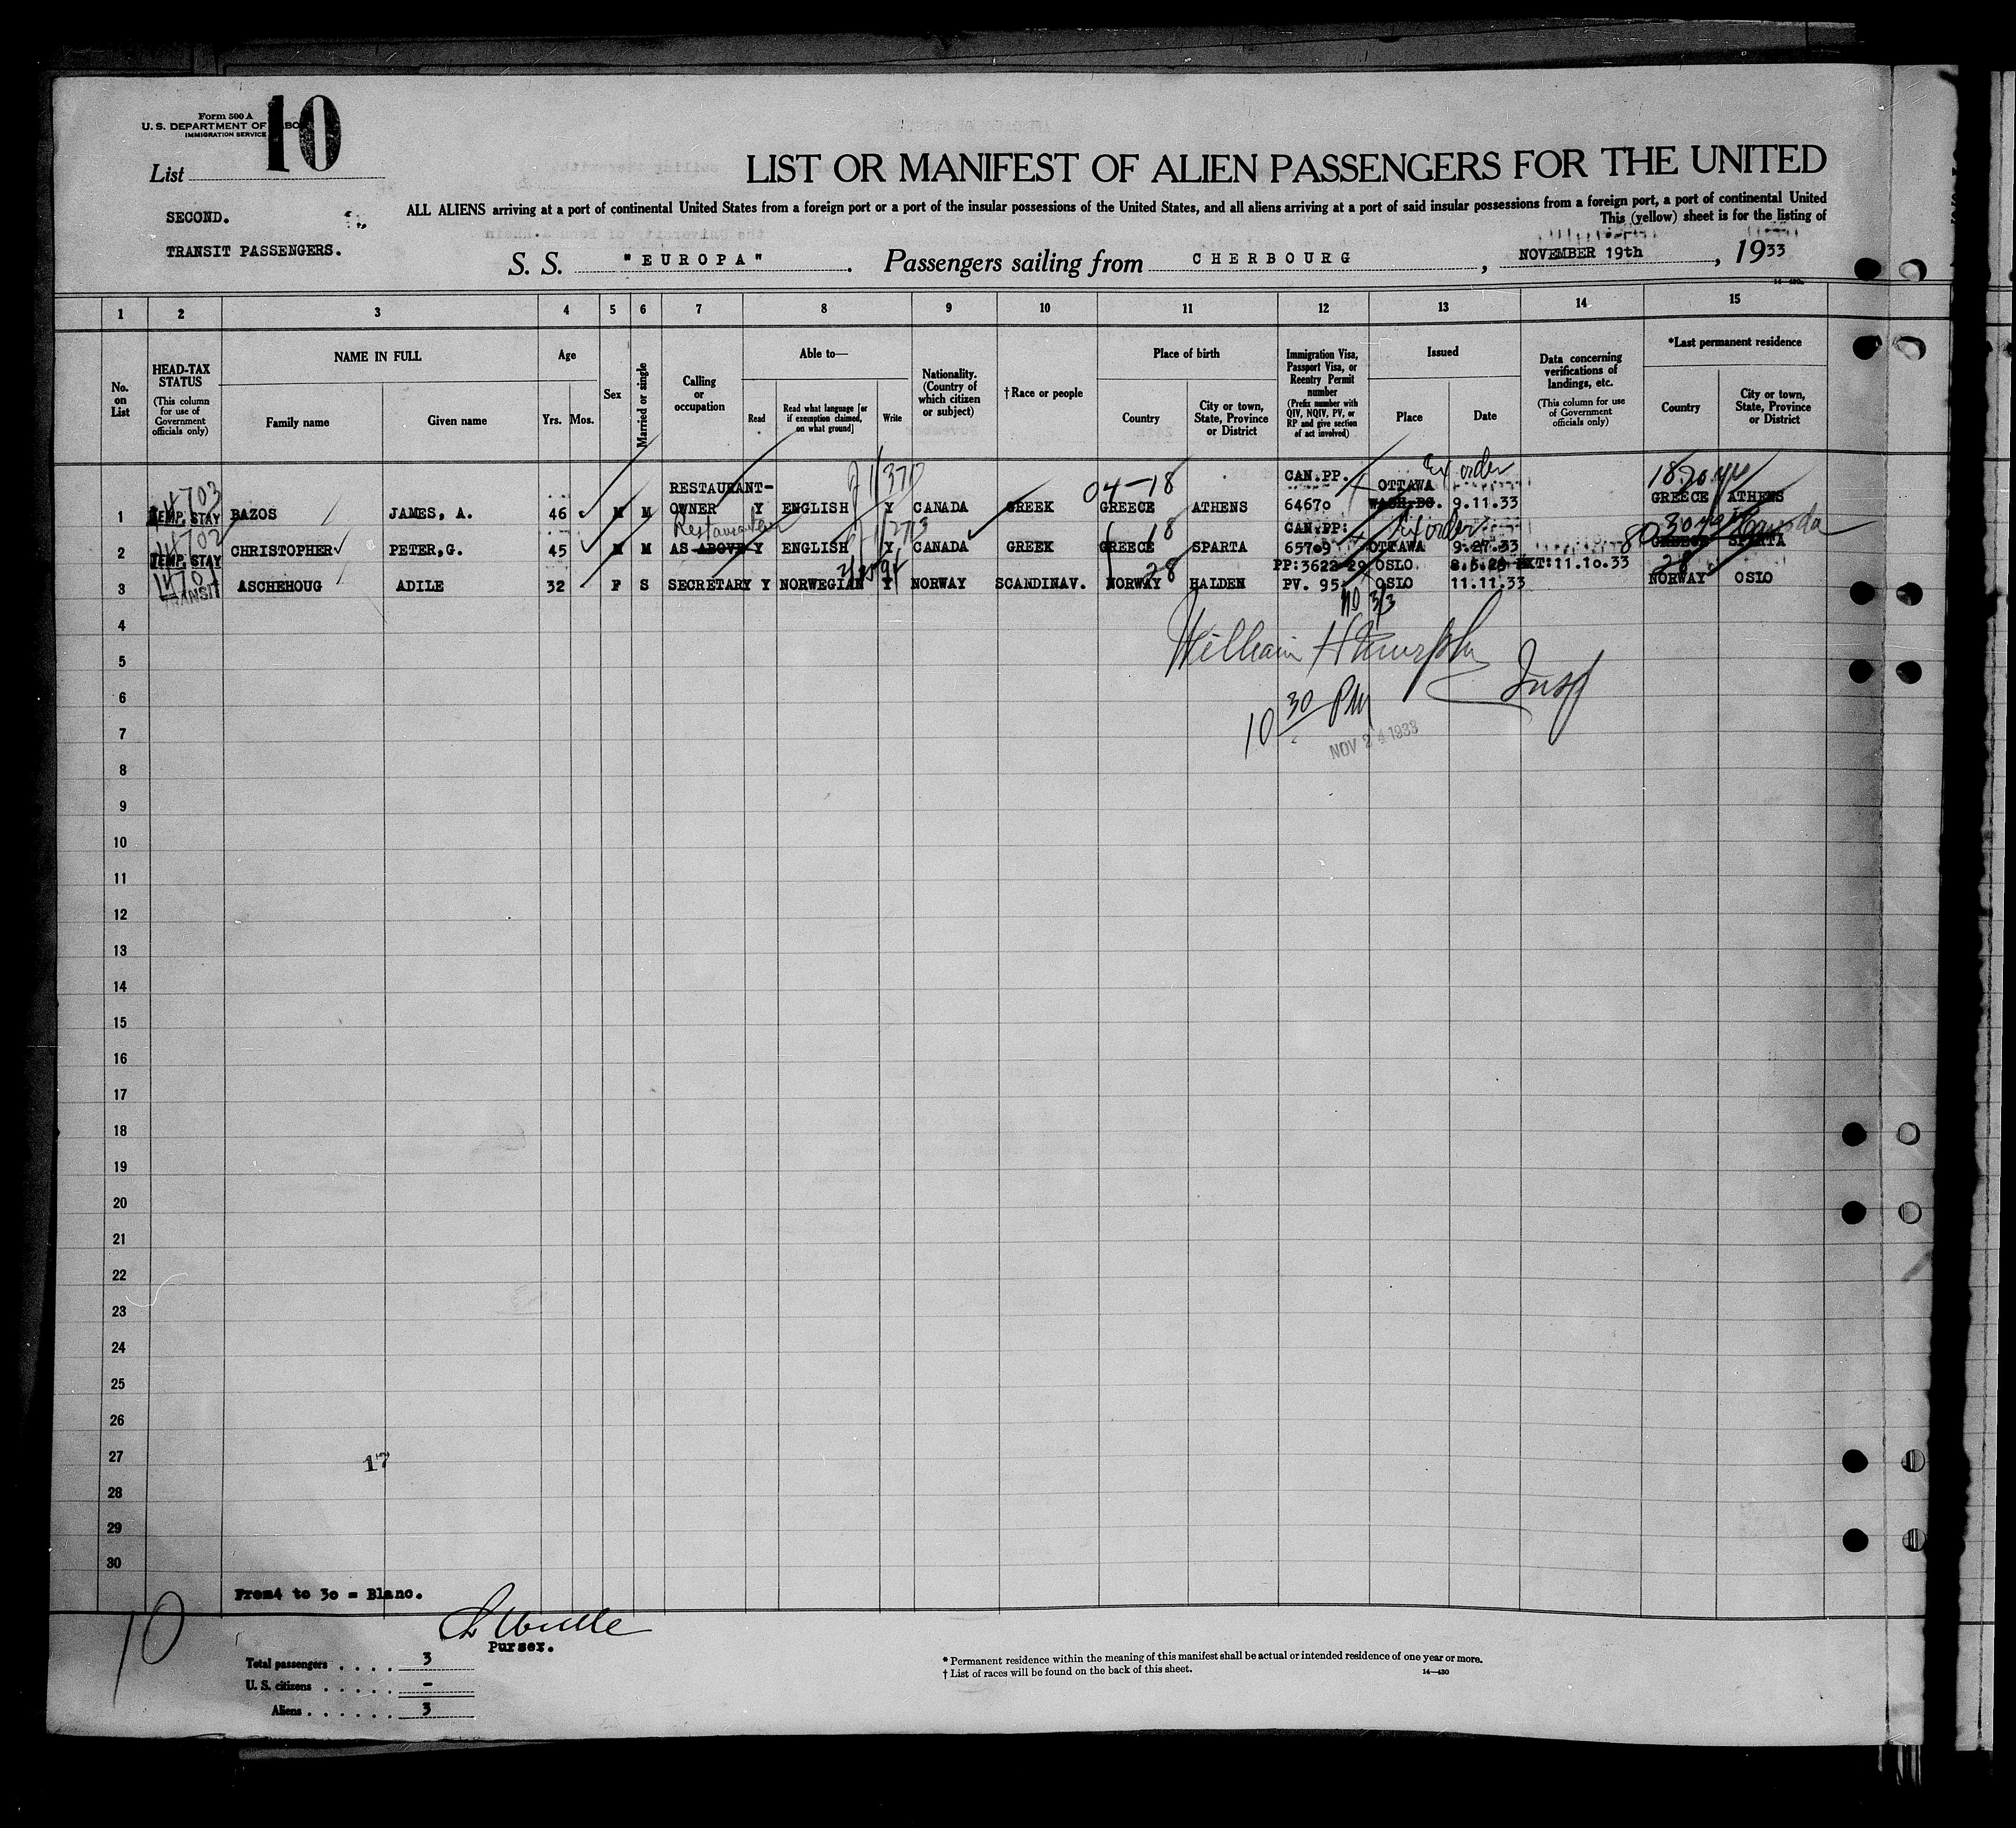 Form 500 A
U. S. DEPARTMENT OF LABOR
IMMIGRATION SERVICE
List 10
SECOND.
TRANSIT PASSENGERS.
LIST OR MANIFEST OF ALIEN PASSENGERS FOR THE UNITED
ALL ALIENS arriving at a port of continental United States from a foreign port or a port of the insular possessions of the United States, and all aliens arriving at a port of said insular possessions from a foreign port, a port of continental United
This (yellow) sheet is for the listing of
S. S. "EUROPA" . Passengers sailing from CHERBOURG , NOVEMBER 19th , 1933
1 2 3 4 5 6 7 8 9 10 11 12 13 14 15
No. on List
HEAD-TAX STATUS (This column for use of Government officials only)
NAME IN FULL
Family name Given name
Age
Yrs. Mos.
Sex
Married or single
Calling or occupation
Able to—
Read Read what language [or if exemption claimed, on what ground] Write
Nationality. (Country of which citizen or subject)
† Race or people
Place of birth
Country City or town, State, Province or District
Immigration Visa, Passport Visa, or Reentry Permit number (Prefix number with QIV, NQIV, PV, or RP and give section of act involved)
Issued
Place Date
Data concerning verifications of landings, etc. (This column for use of Government officials only)
*Last permanent residence
Country City or town, State, Province or District
04-18 CAN.PP. Ex order
14703 RESTAURANT- OTTAWA
1 TEMP. STAY BAZOS JAMES, A. 46 M M OWNER Y ENGLISH Y CANADA GREEK GREECE ATHENS 64670 WASH.DC. 9.11.33 GREECE ATHENS
14702 18 CAN.PP: Ex order 30 yrs Canada
2 TEMP. STAY CHRISTOPHER PETER,G. 45 M M AS ABOVE Y ENGLISH Y CANADA GREEK GREECE SPARTA 65709 OTTAWA 9.27.33 GREECE SPARTA
28 PP:3622-29 OSLO 11.10.33 28
3 TRANSIT ASCHEHOUG ADILE 32 F S SECRETARY Y NORWEGIAN Y NORWAY SCANDINAV. NORWAY HALDEN PV. 95 OSLO 11.11.33 NORWAY OSLO
4
5 William H Murphy
6 Insp
7 10 30 PM
NOV 24 1933
8
9
10
11
12
13
14
15
16
17
18
19
20
21
22
23
24
25
26
27 17
28
29
30
From4 to 30 = Blanc.
10
Purser.
Total passengers . . . . 3
U. S. citizens . . . . . -
Aliens . . . . . . 3
* Permanent residence within the meaning of this manifest shall be actual or intended residence of one year or more.
† List of races will be found on the back of this sheet. 14—430